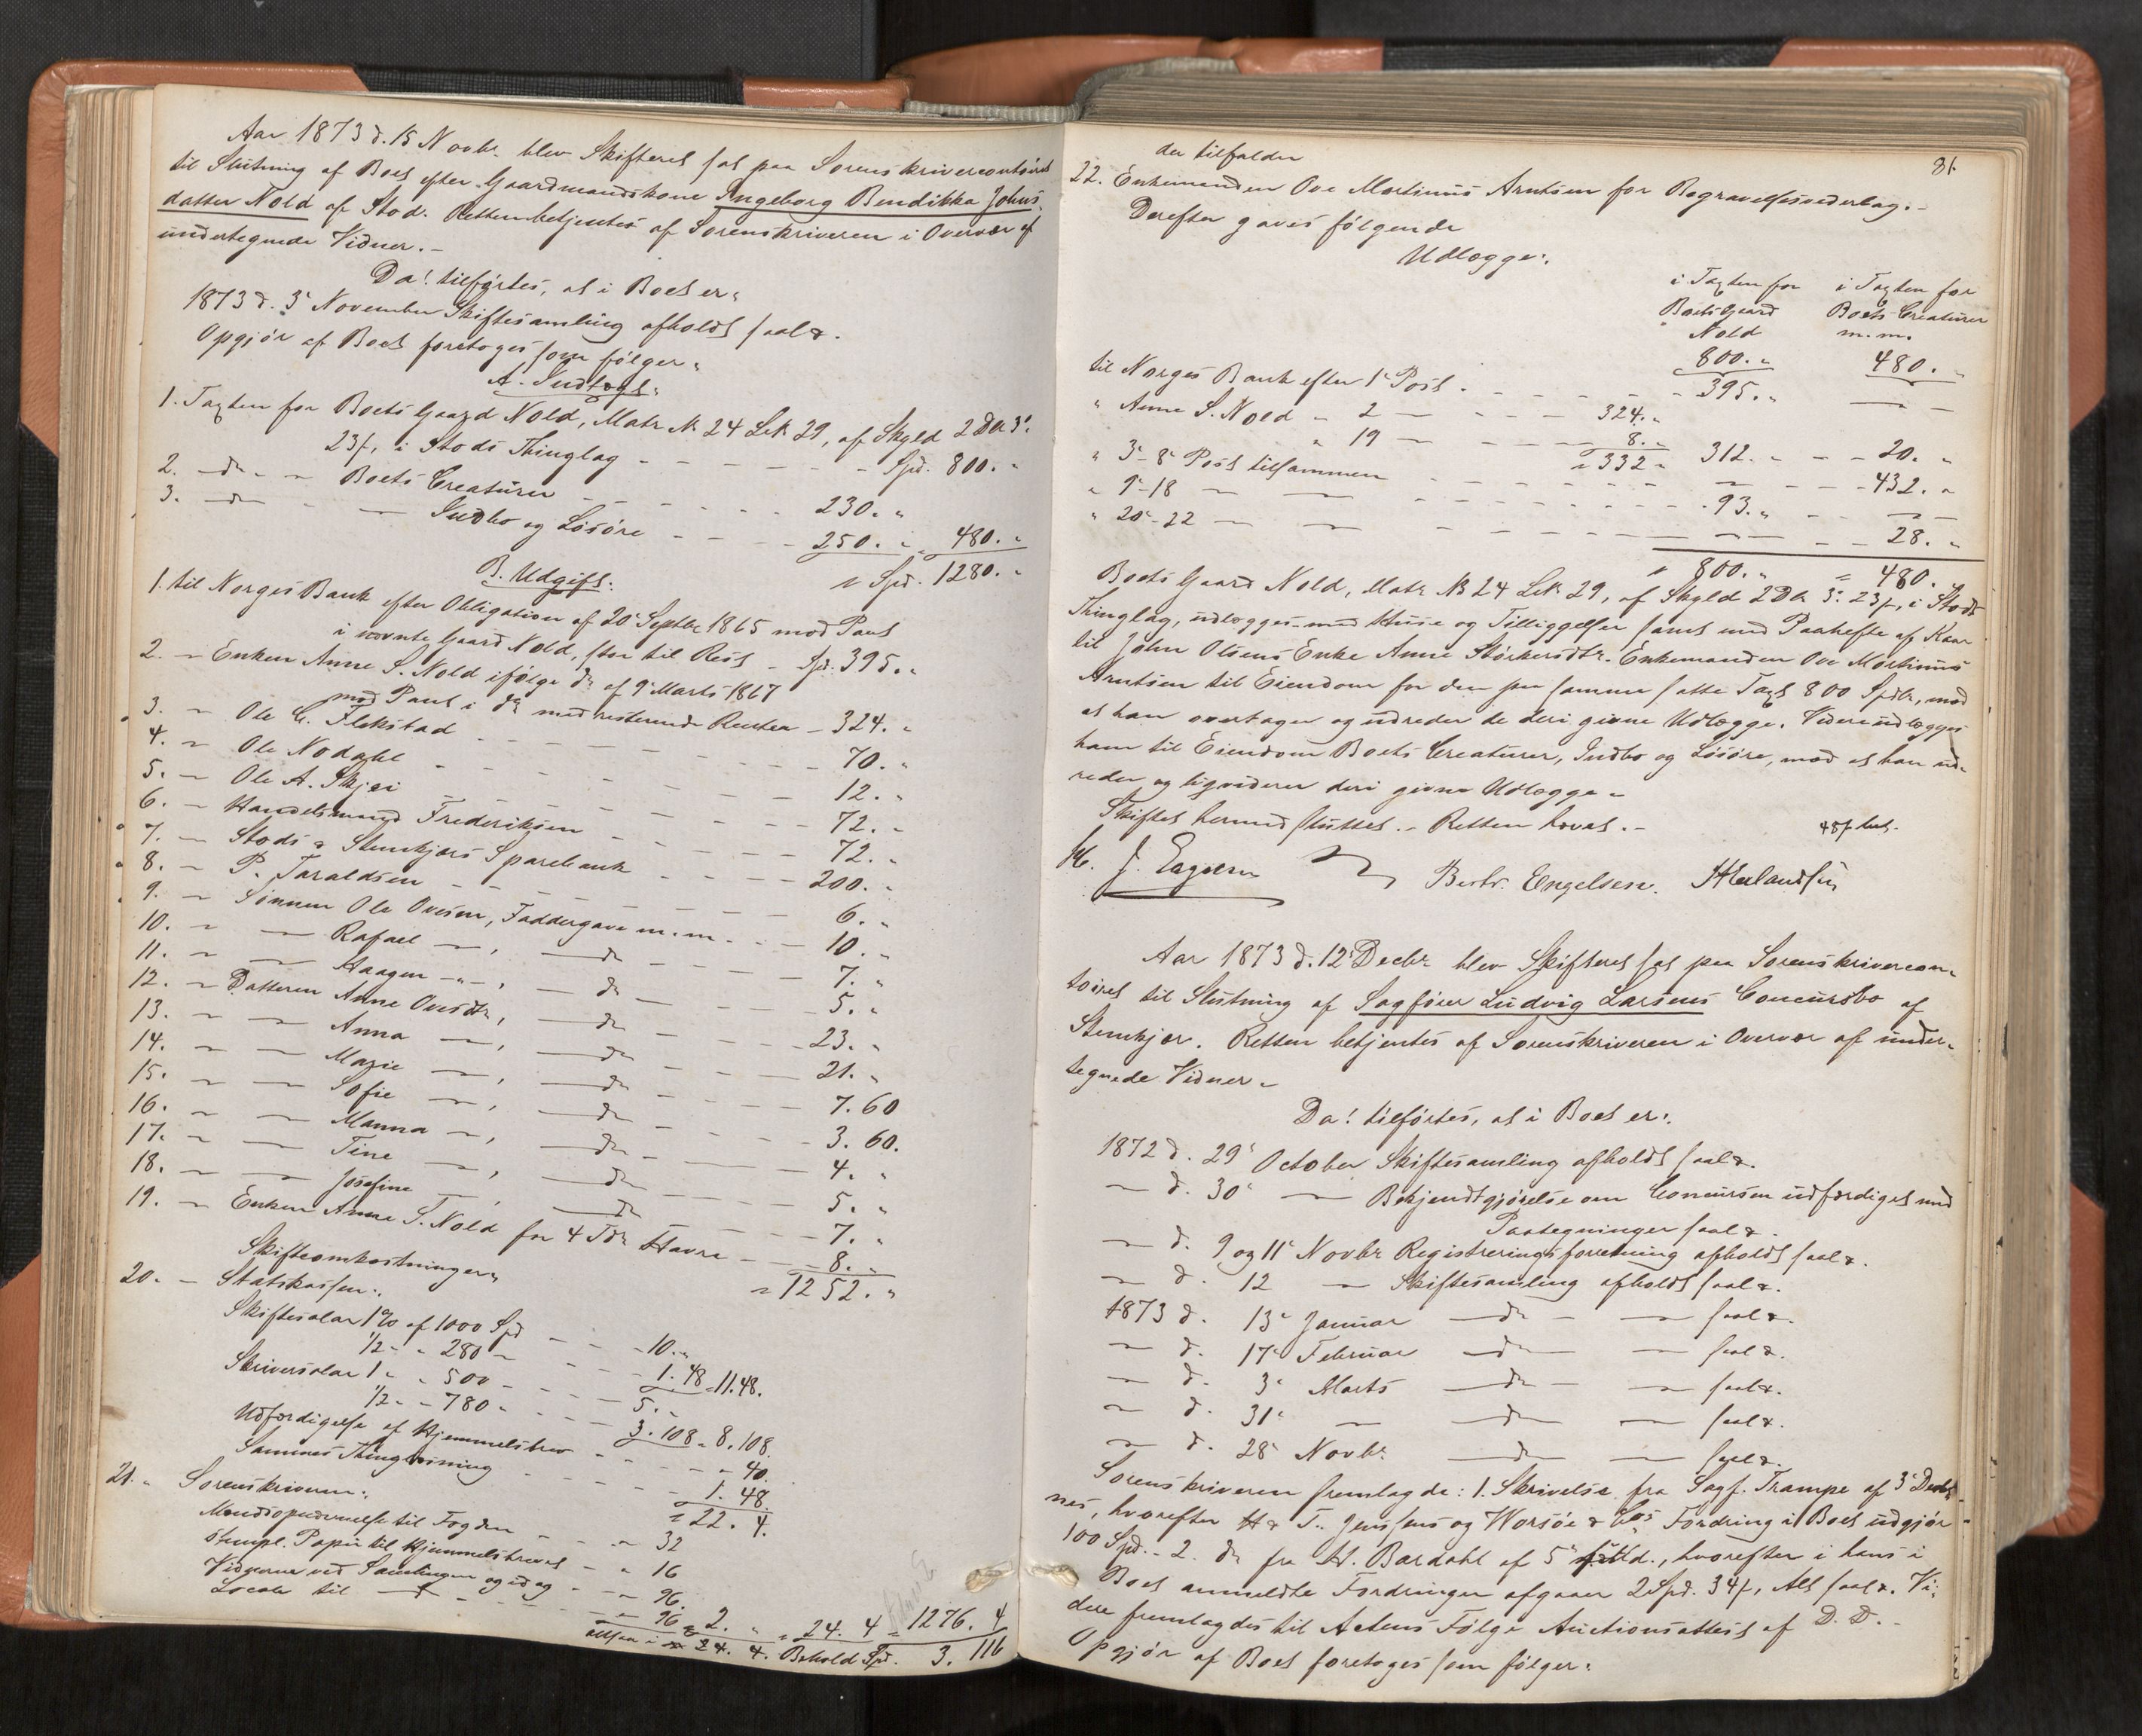 Aar 1873 d. 15 Novbr. blev Skifteret sat paa Sorenskrivercontoiret
til Slutning af Boet efter Gaardmandskone Ingeborg Bendikka Johns
datter Nold af Stod. Retten betjentes af Sorenskriveren i Overvær af
undertegnede Vidner.-
Da! tilførtes, at i Boet er:
1873 d. 3' November Skiftesamling afholdt saal&.
Opgjør af Boet foretoges som følger:
A. Indtægt:
1. Taxten for Boets Gaard Nold, Matr. N. 24 Lb. 29, af Skyld 2 Dlr 3.
23 f, i Stods Thinglag - - - - Spd. 800. "
2. - do - - Boets Creaturer - - - - 230. "
3. - do - - Indbo og Løsøre - - - - 250. " = 480. "
= Spd. 1280. "
B. Udgift:
1. til Norges Bank efter Obligation af 20' Septbr 1865 mod Pant
i nævnte Gaard Nold, stor til Rest - Spd. 395. "
2. - Enken Anne S. Nold ifølge do af 9' Marts 1867
med Pant i do med resterende Renter - 324. "
3. - Ole C. Flekstad - - - - 70. "
4. - Ole Nodahl - - - - 12. "
5. - Ole A. Skjei - - - - 72. "
6. - Handelsmand Frederiksen - - - - 72. "
7. - Stods & Stenkjærs Sparebank - - - - 200. "
8. - P. Taraldsen - - - - 6. "
9. - Sønnen Ole Ovesen, Faddergave m.m. - - 10. "
10. - - Rafael -, - do - - - 7. "
11. - - Haagen - " -, - do - - - 5. "
12. - Datteren Anne Ovesdtr, - do - - - 23. "
13. - - Anna -, - do - - - 21. "
14. - - Marie -, - do - - - 7. 60
15. - - Sofie -, - do - - - 3. 60.
16. - - Manna -, - do - - - 4. "
17. - - Tine -, - do - - - 5. "
18. - - Josefine -, - do - - - 7. "
19. - Enken Anne S. Nold for 4 Tdr Havre - 8. "
= 1252. "
Skifteomkostninger:
20. - Statskassen:
Skiftesalar 1% af 1000 Spd - - - 10. "
1/2 - - 280 - - - 1. 48 = 11. 48.
Skriversalar 1 - - 500 - - - 5. "
1/2 - - 780 - - - 3. 108 = 8. 108.
Udfærdigelse af Hjemmelsbrev - - - 40.
Sammes Thinglæsning - - - 1. 48.
= 22. 4.
21. - Sorenskriveren:
Mændsopnævnelse til Fogden - - " 32
Stempl. Papir til Hjemmelsbrevet - - " 16
Vidnerne ved Samlingen og idag - - " 96.
Locale til - do - - - " 96 = 2. " = 24. 4 = 1276. 4
altsaa i 24. 4. Behold Spd. 3. 116
81.
der tilfalder
22. Enkemanden Ove Martinus Arntsen for Begravelsesvederlag.-
Derefter gaves følgende
Udlægge:
i Taxten for i Taxten for
Boets Gaard Boets Creaturer
Nold m.m.
800. " 480. "
til Norges Bank efter 1' Post - - - - 395. " -
" Anne S. Nold - 2 - - - - 324. "
" 19 - - - - 8. "
= 332 " 312. " - - 20. "
" 3'-8' Post tilsammen - - - - - 432. "
" 9'-18 - - - - - 93. " - -
" 20'-22 - - - - - - - - 28. "
" 800. " = 480.
Boets Gaard Nold, Matr. N 24 Lb. 29, af Skyld 2 Dlr 3. 23 f, i Stods
Thinglag, udlægges med Huse og Tilliggelser samt med Paahefte af Kaar
til John Olsens Enke Anne Størkersdtr. Enkemanden Ove Martinus
Arntsen til Eiendom for den paa samme satte Taxt 800 Spdlr, mod
at han overtager og udreder de deri givne Udlægge. Videre udlægges
ham til Eiendom Boets Creaturer, Indbo og Løsøre, mod at han ud-
reder og liqviderer deri givne Udlægge -
Skiftet hermed sluttet. - Retten hævet. - 48 f bet.
J. Bertr. Engelsen.
Aar 1873 d. 12' Decbr blev Skifteret sat paa Sorenskrivercon-
toiret til Slutning af Sagfører Ludvig Larsens Concursbo af
Stenkjær. Retten betjentes af Sorenskriveren i Overvær af under-
tegnede Vidner -
Da! tilførtes, at i Boet er:
1872 d. 29' October Skiftesamling afholdt saal&.
- d. 30' - Bekjendtgjørelse om Concursen udfærdiget med
Paategninger saal&.
- d. 9 og 11' Novbr Registreringsforretning afholdt saal&.
- d. 12 - Skiftesamling afholdt saal&.
1873 d. 13' Januar - do - - saal&.
- d. 17' Februar - do - - saal&.
- d. 3' Marts - do - - saal&.
- d. 31' - - do - - saal&.
- d. 28' Novbr. - do - - saal&.
Sorenskriveren fremlagde: 1. Skrivelse fra Sagf. Trampe af 3' Decbr
nes, hvorefter H & T. Jenssens og Worsøe & Cos Fordring i Boet udgjør
100 Spd. - 2. do fra H. Bardahl af 5' , hvorefter i hans i
Boet anmeldte Fordringer afgaar 2 Spd. 34 f, Alt saal&. Vi-
dere fremlagdes til Actens Følge Auctionsattest af D. D. -
Opgjør af Boet foretoges som følger: